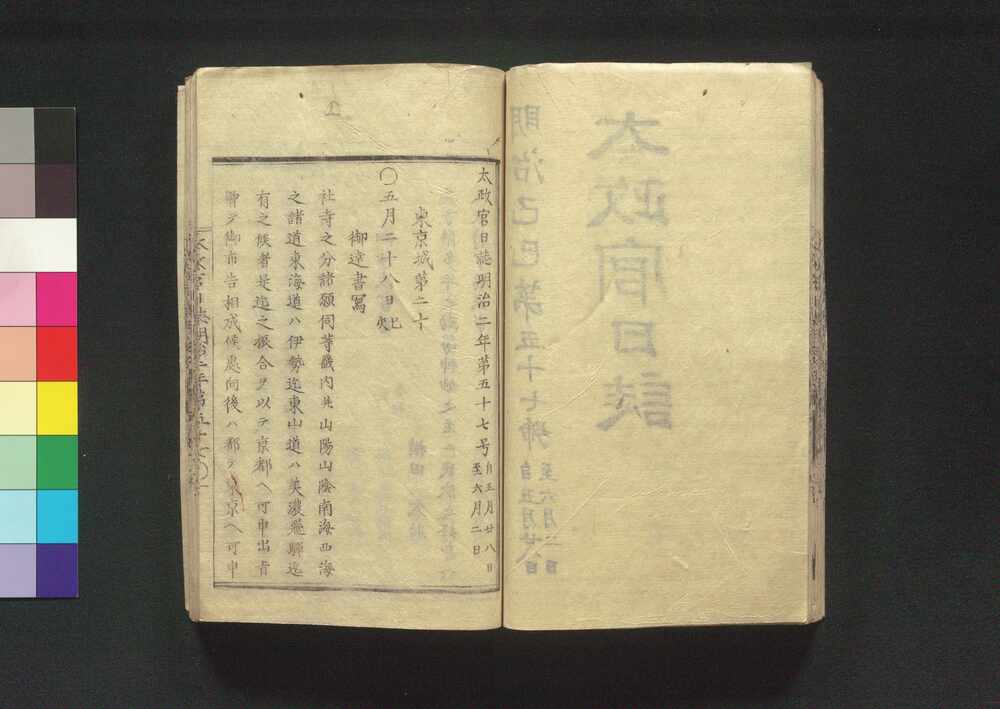 太政官日誌明治二年第五十七号 自五月廿八日 至六月二日
東京城第二十
〇五月二十八日
御達書寫
社寺之分諸願伺等畿内共山陽山陰南海西海
之諸道東海道ハ伊勢迄東山道ハ美濃飛驒迄
有之候者是迄之振合ヲ以テ京都ヘ可申出旨
曽テ御布告相成候處向後ハ都テ東京ヘ可申
太政官日誌
明治己巳第五十七号 自五月廿八日 至六月二日